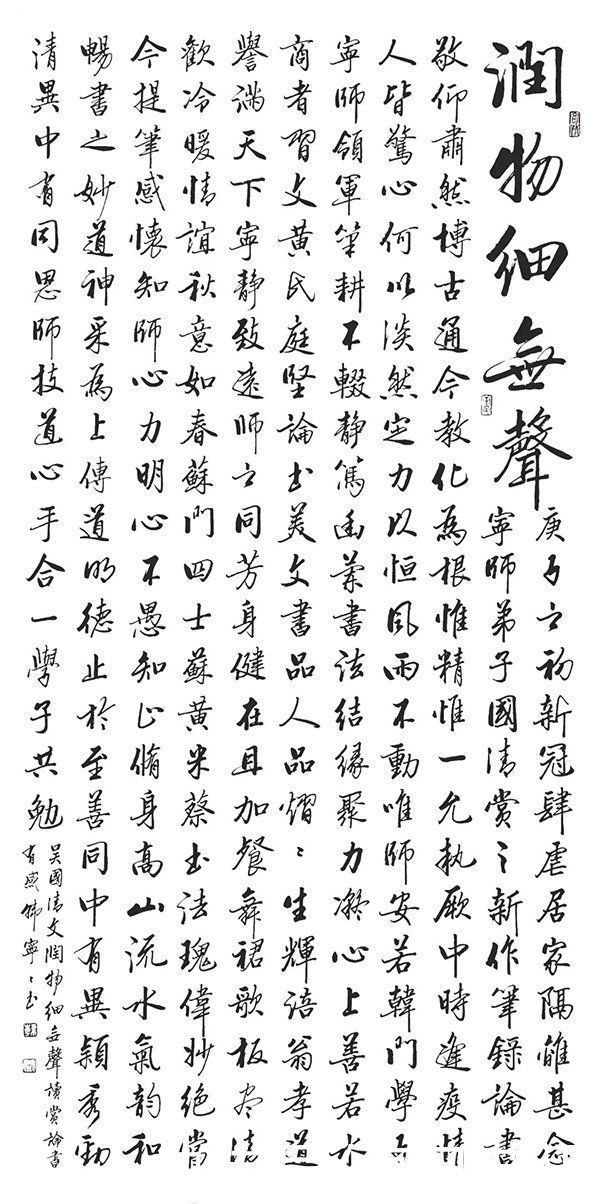 潤物細無聲
庚子之初新冠肆虐居家隔離甚念
寧師弟子國清賞之新作筆錄論書
敬仰肅然博古通今教化為根惟精惟一允執厥中時逢疫情
人皆驚心何以淡然定力以恒風雨不動唯師安若韓門學子
寧師領軍筆耕不輟靜篤幽蘭書法結緣聚力凝心上善若水
商者習文黃氏庭堅論書美文書品人品熠〻生輝涪翁孝道
譽滿天下寧靜致遠師之同芳身健在且加餐舞裙歌板盡清
歡冷暖情誼秋意如春蘇門四士蘇黃米蔡書法瑰偉妙絕當
今提筆感懷知師心力明心不愚知止脩身高山流水氣韵和
暢書之妙道神采為上傳道明德止於至善同中有異穎秀勁
清異中有同恩師技道心手合一學子共勉
吳國清文潤物細無聲讀賞論書
有感韓寧〻書